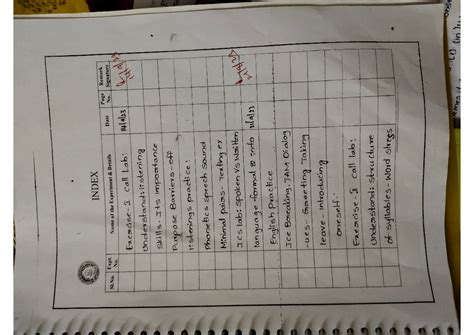 INDEX
Sl.No. Expt. No. Name of the Experiment & Details Date Page No. Remark Signature
Exercise-I call Lab: 14/9/23
Understand: listening
skills. Its importance
Purpose Barriers-off
listenings practice:
Phonetics speech sound
Minimal pairs-
Ics lab: spoken vs written
language-formal & info
English Practice
Ice Breaking, JAM Dialog
-ues- Greeting Taking
leave - introducing
oneself:
Exercise-I call lab:
Understand: structure
of syllables - Word stress